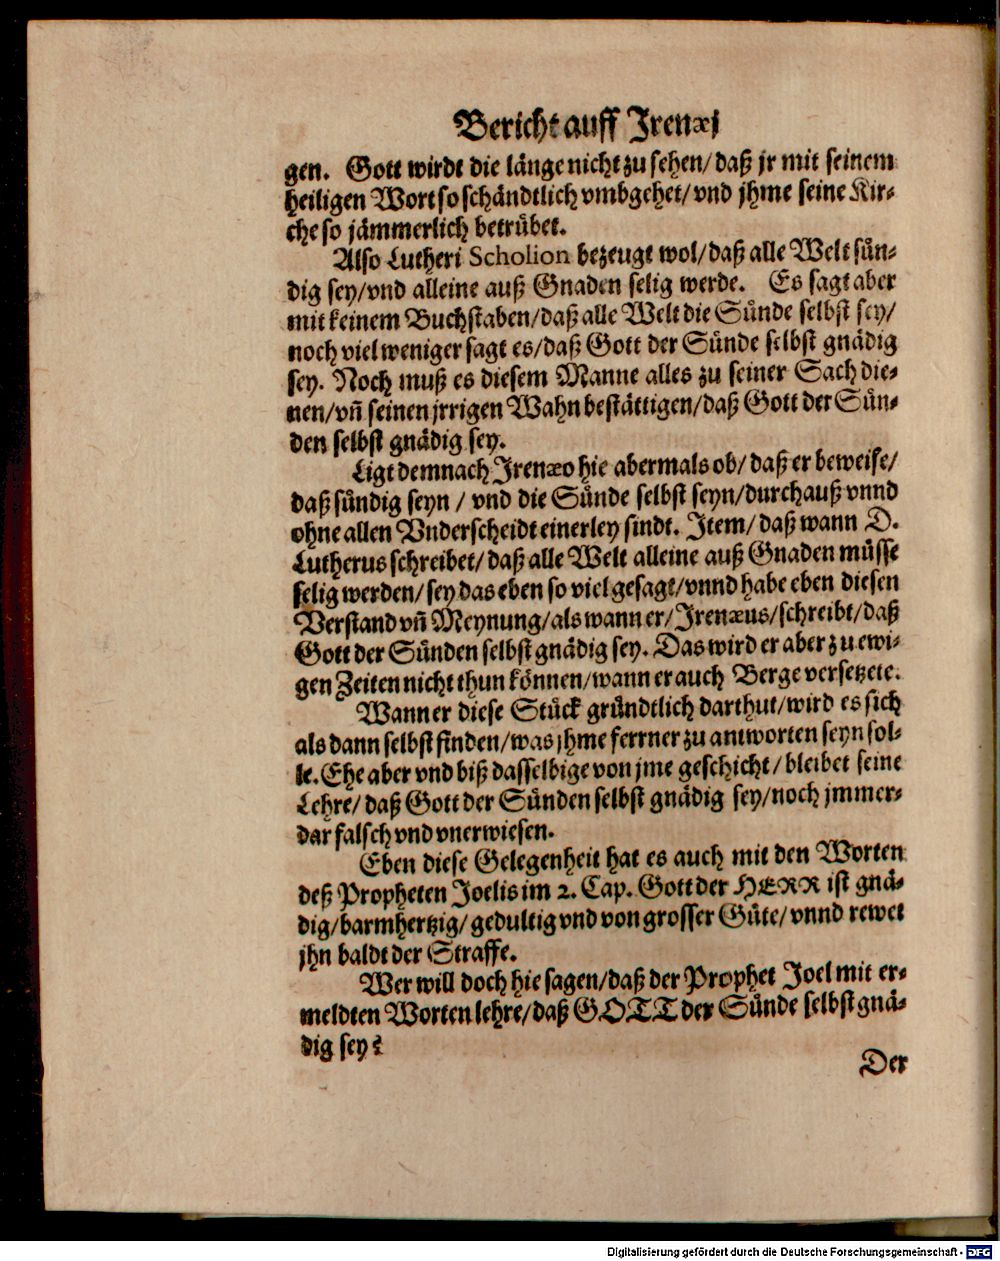 Bericht auff Jrenæj
gen. Gott wirdt die länge nicht zu sehen/ daß jr mit seinem
heiligen Wort so schändtlich vmbgehet/ vnd jhme seine Kir-
che so jämmerlich betrübet.
Also Lutheri Scholion bezeugt wol/ daß alle Welt sün-
dig sey/ vnd alleine auß Gnaden selig werde. Es sagt aber
mit keinem Buchstaben/ daß alle Welt die Sünde selbst sey/
noch viel weniger sagt es/ daß Gott der Sünde selbst gnädig
sey. Noch muß es diesem Manne alles zu seiner Sach die-
nen/ vñ seinen jrrigen Wahn bestättigen/ daß Gott der Sün-
den selbst gnädig sey.
Ligt demnach Jrenæo hie abermals ob/ daß er beweise/
daß sündig seyn / vnd die Sünde selbst seyn/ durchauß vnnd
ohne allen Vnderscheidt einerley sindt. Jtem/ daß wann D.
Lutherus schreibet/ daß alle Welt alleine auß Gnaden müsse
selig werden/ sey das eben so viel gesagt/ vnnd habe eben diesen
Verstand vñ Meynung/ als wann er/ Jrenæus/ schreibt/ daß
Gott der Sünden selbst gnädig sey. Das wird er aber zu ewi-
gen Zeiten nicht thun können/ wann er auch Berge versetzete.
Wann er diese Stück gründtlich darthut/ wird es sich
als dann selbst finden/ was jhme ferrner zu antworten seyn sol-
le. Ehe aber vnd biß dasselbige von jme geschicht/ bleibet seine
Lehre/ daß Gott der Sünden selbst gnädig sey/ noch jmmer-
dar falsch vnd vnerwiesen.
Eben diese Gelegenheit hat es auch mit den Worten
deß Propheten Joelis im 2. Cap. Gott der HERR ist gnä-
dig/ barmhertzig/ gedultig vnd von grosser Güte/ vnnd rewet
jhn baldt der Straffe.
Wer will doch hie sagen/ daß der Prophet Joel mit er-
meldten Worten lehre/ daß GOTT der Sünde selbst gnä-
dig sey?
Der
Digitalisierung gefördert durch die Deutsche Forschungsgemeinschaft - DFG